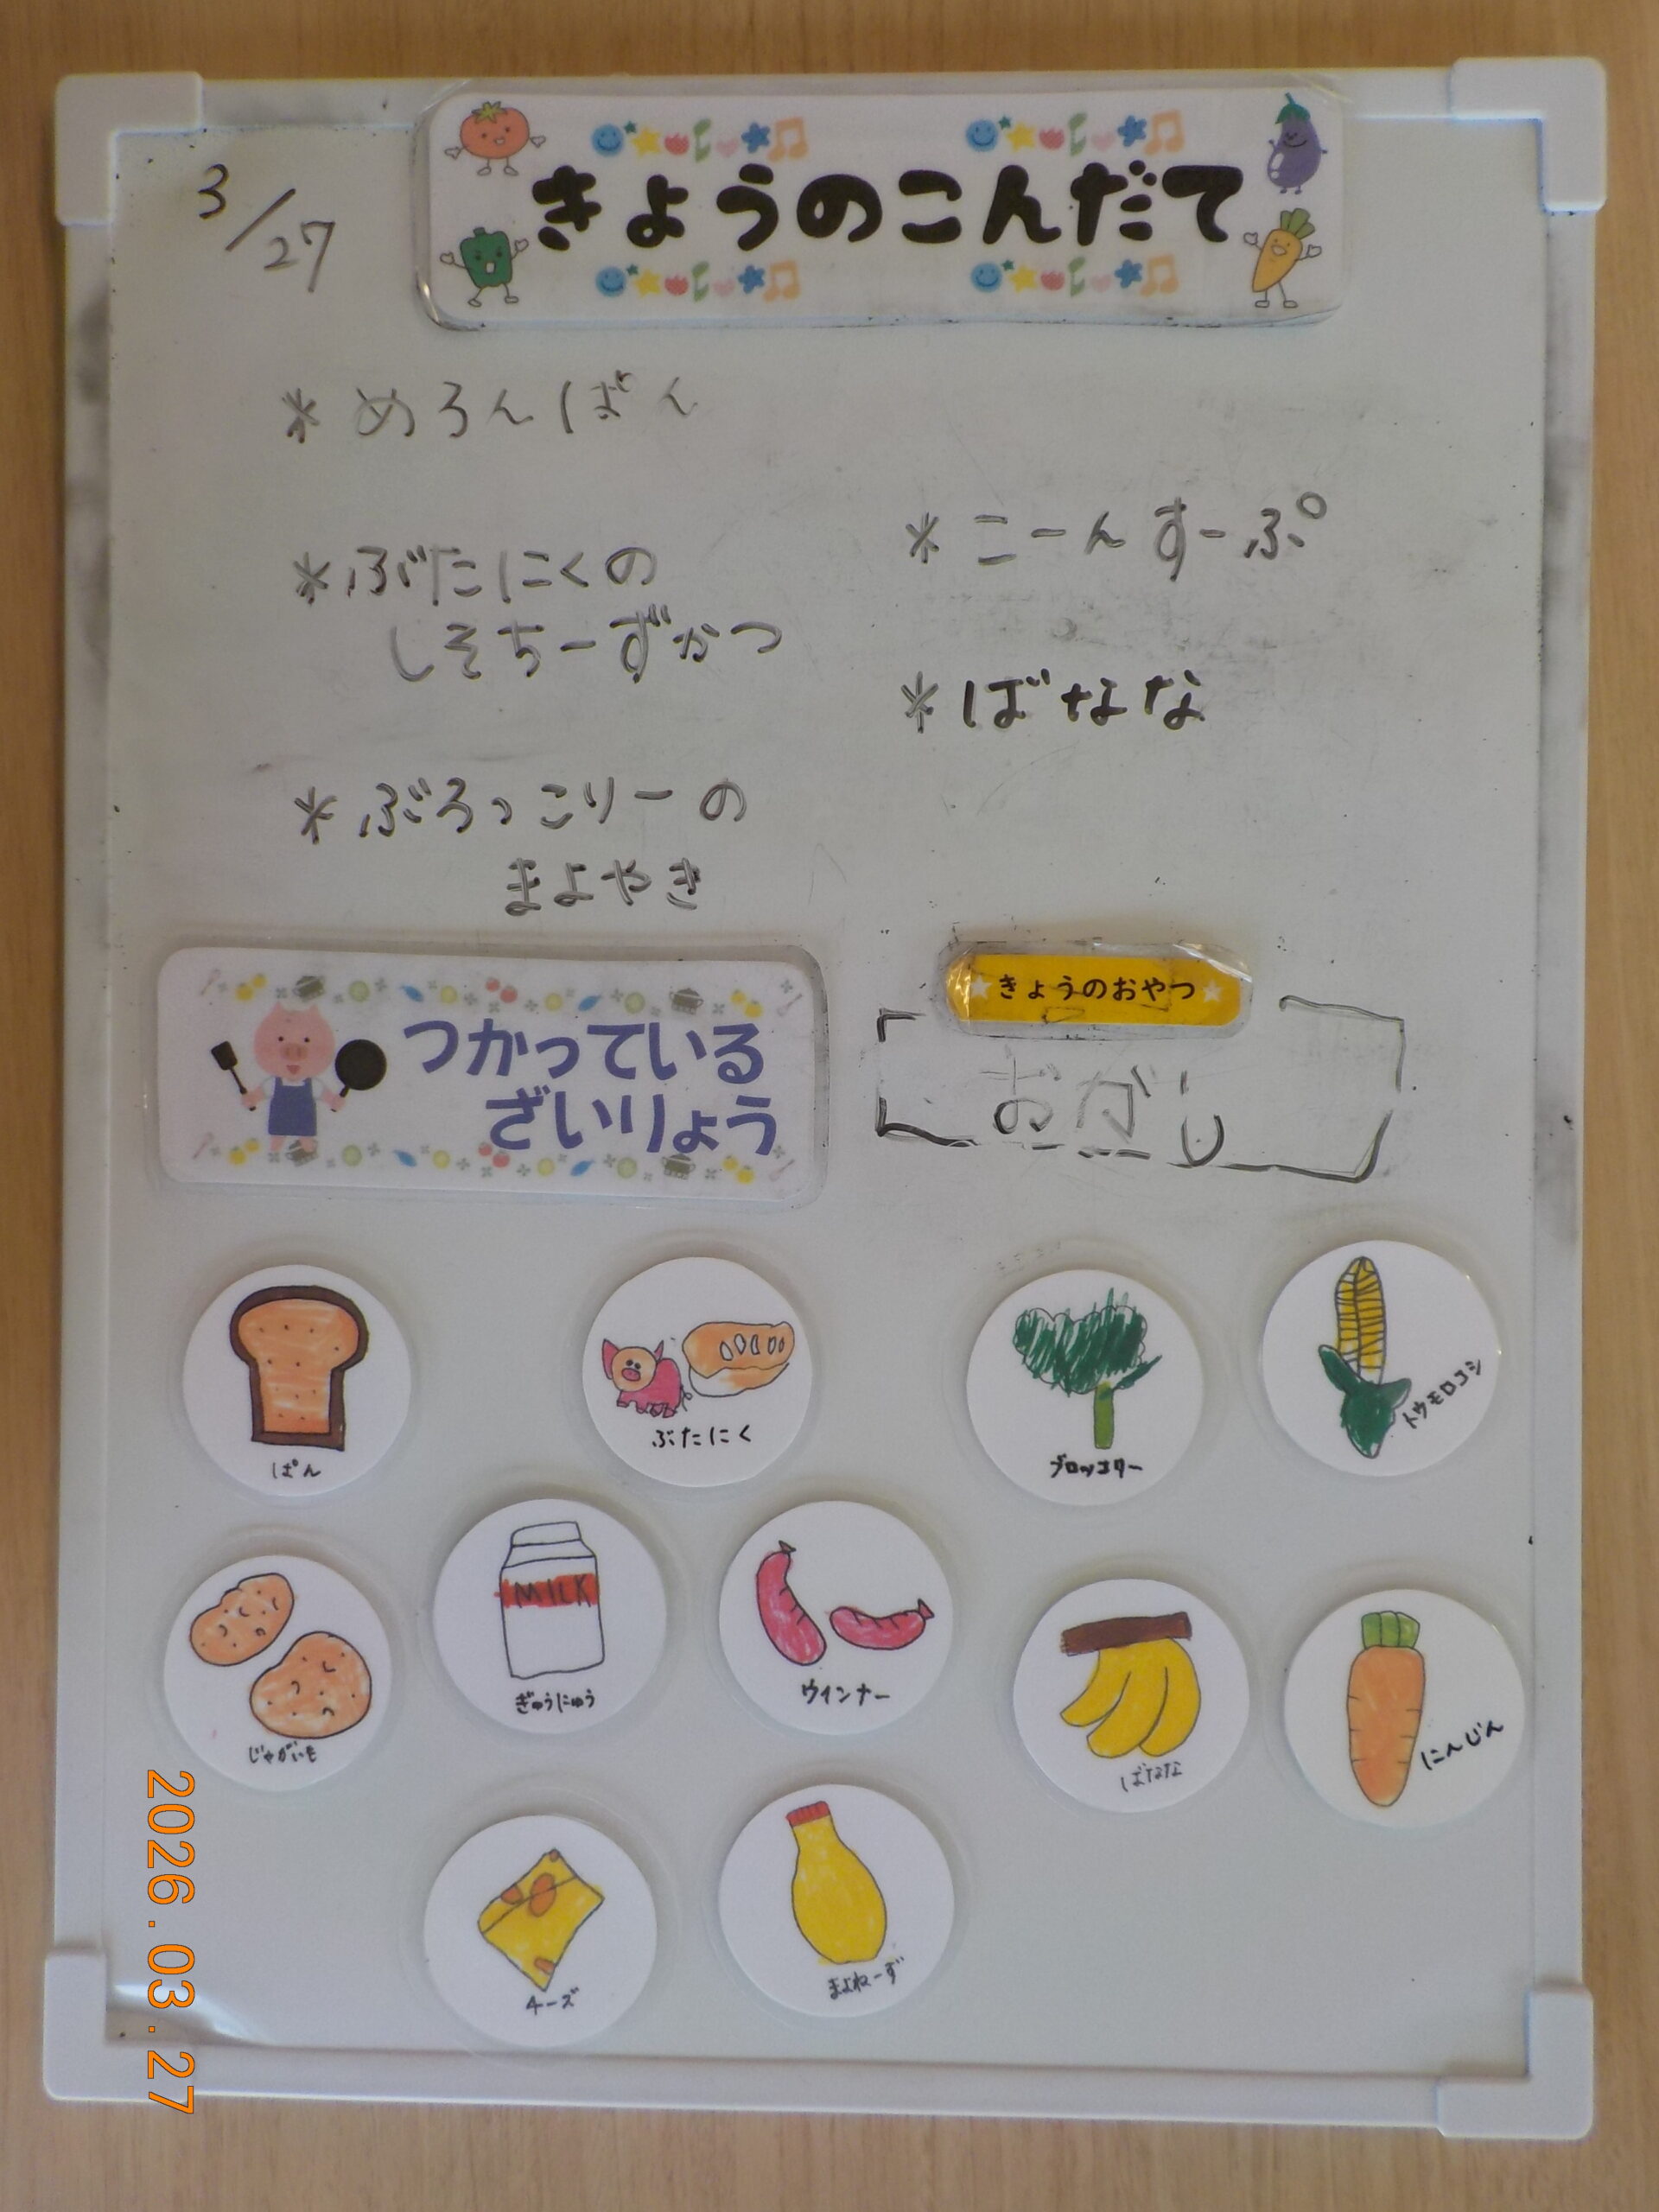 3/27
きょうのこんだて
*めろんぱん
*ぶたにくの
しそちーずかつ
*ぶろっこりーの
まよやき
*こーんすーぷ
*ばなな
きょうのおやつ
おかし
つかっている
ざいりょう
ぱん
ぶたにく
ブロッコリー
トウモロコシ
じゃがいも
MILK
ぎゅうにゅう
ウインナー
ばなな
にんじん
チーズ
まよねーず
2026.03.27